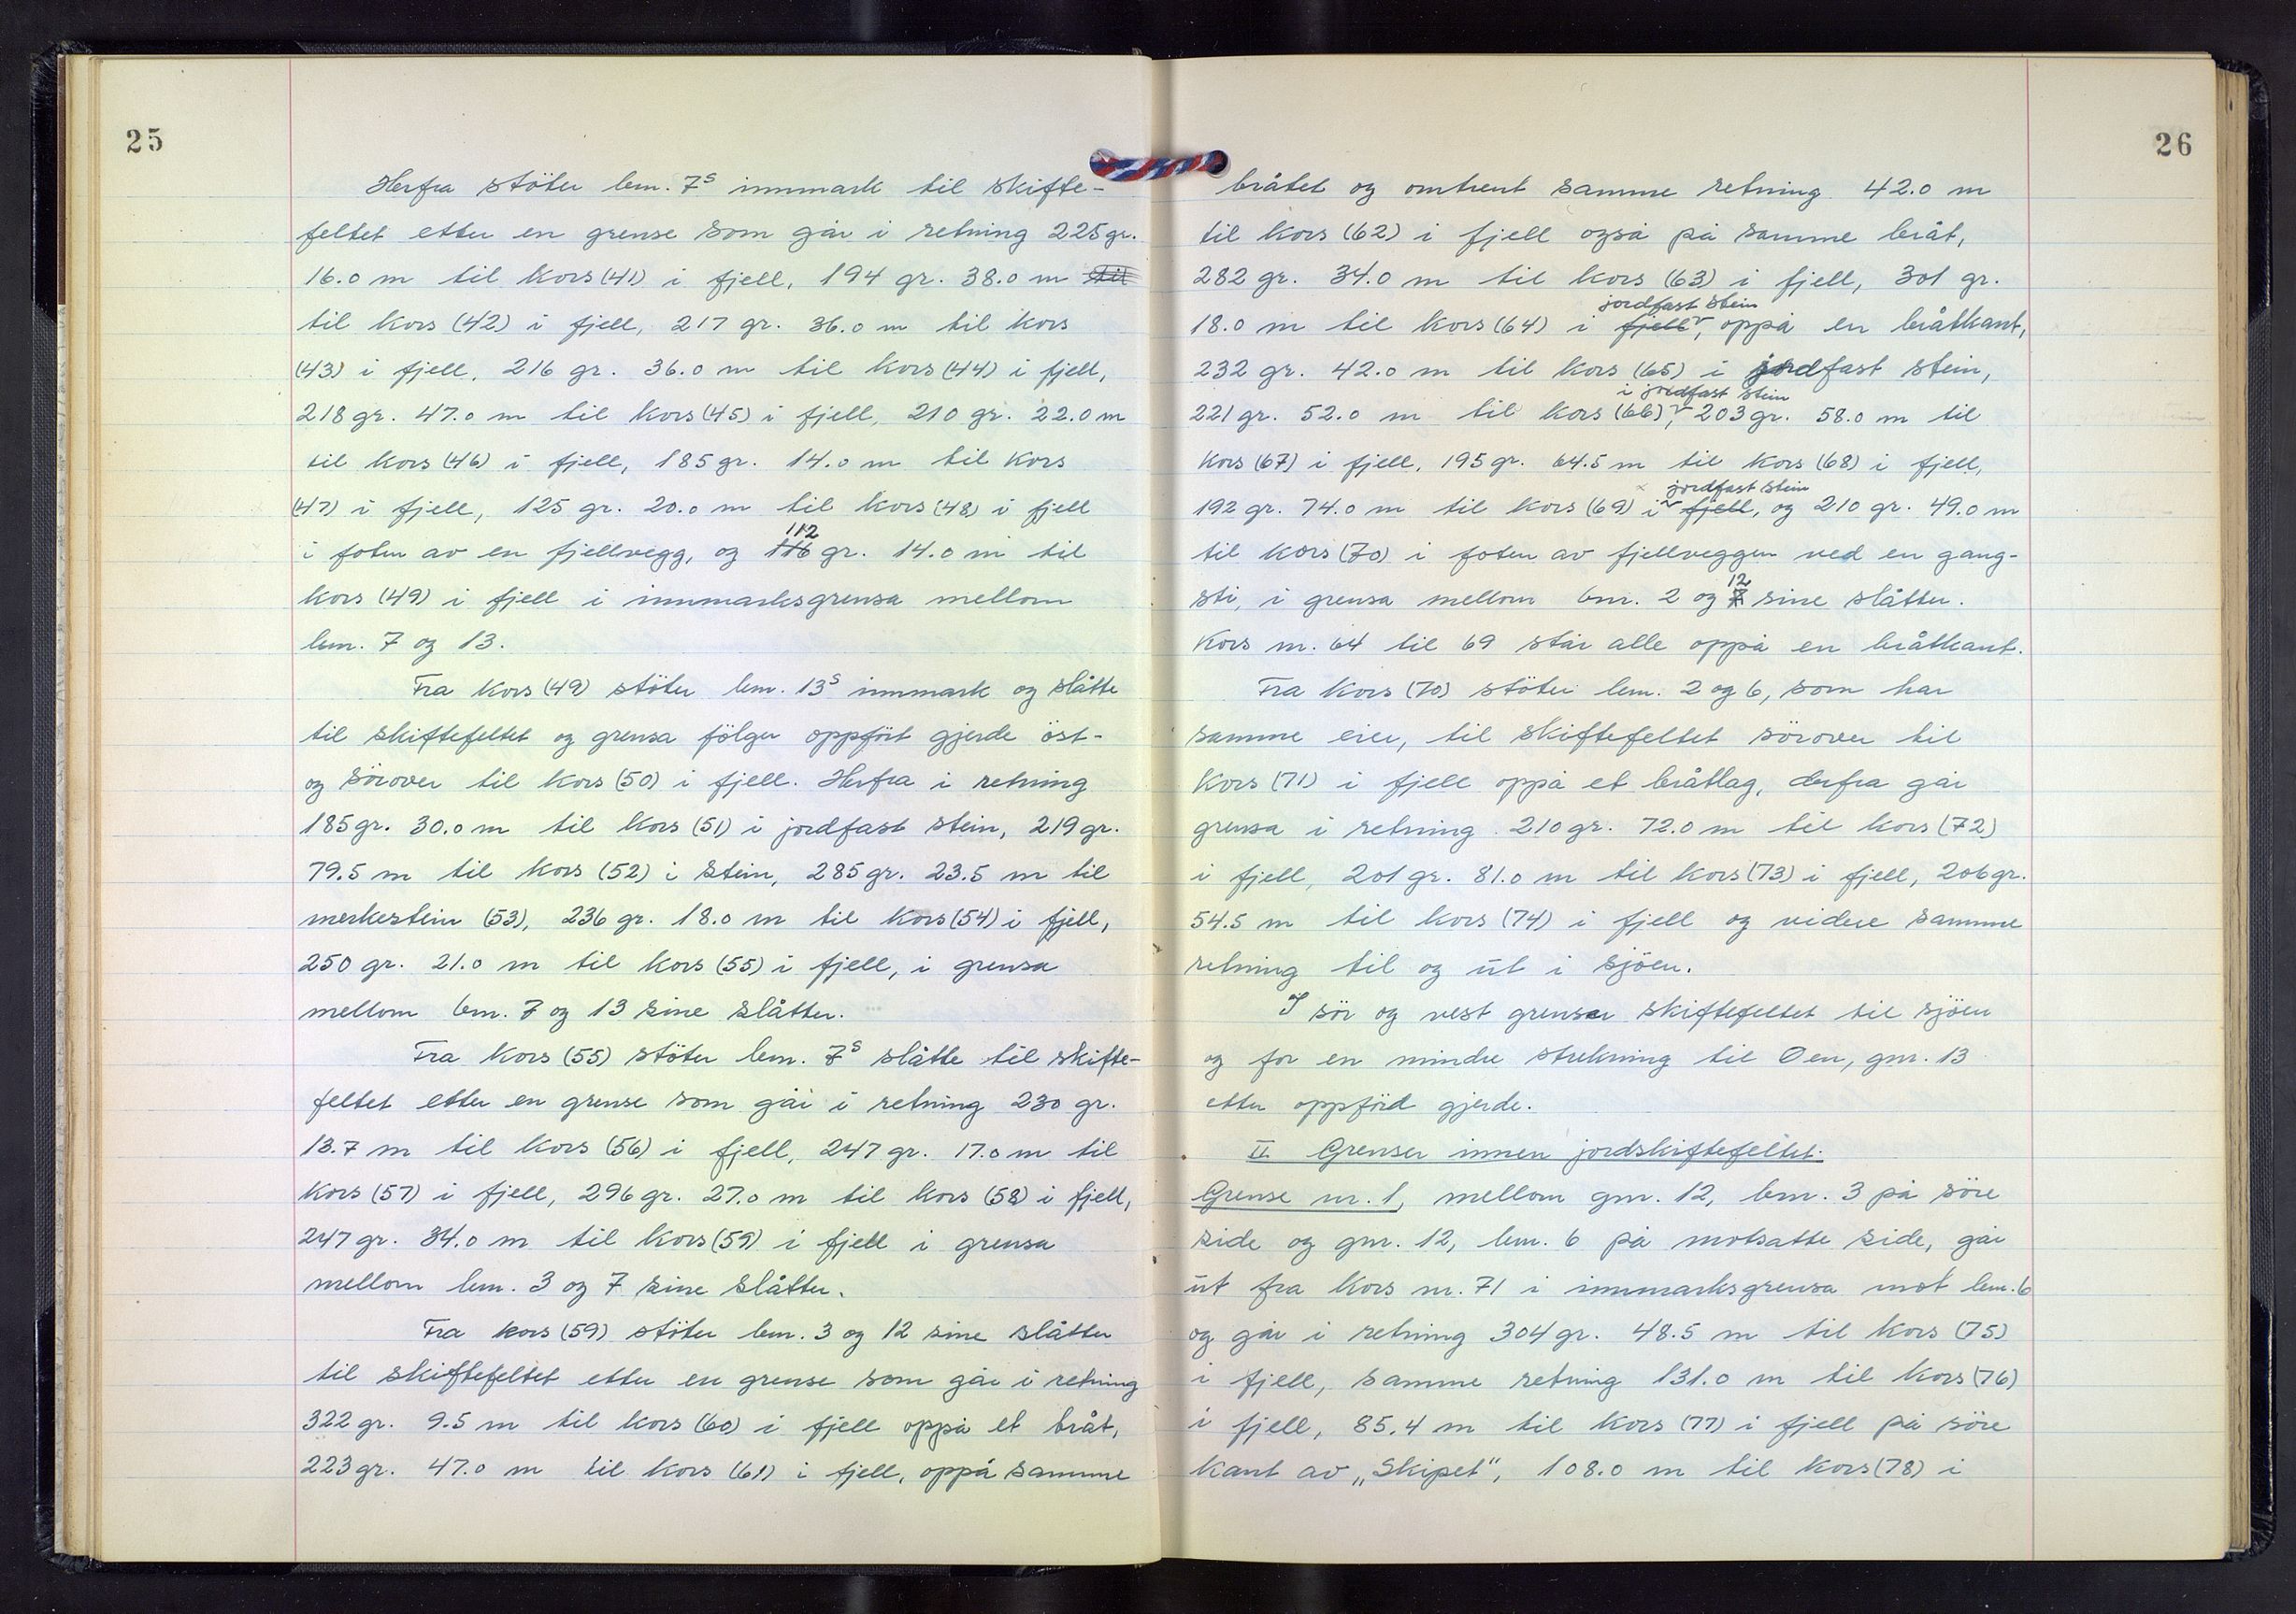 25
Herfra støter bnr. 7s innmark til skifte-
feltet etter en grense som går i retning 225 gr.
16.0 m til kors (41) i fjell, 194 gr. 38.0 m til
til kors (42) i fjell, 217 gr. 36.0 m til kors
(43) i fjell, 216 gr. 36.0 m til kors (44) i fjell,
218 gr. 47.0 m til kors (45) i fjell, 210 gr. 22.0 m
til kors (46) i fjell, 185 gr. 14.0 m til kors
(47) i fjell, 125 gr. 20.0 m til kors (48) i fjell
112
i foten av en fjellvegg, og 116 gr. 14.0 m til
kors (49) i fjell i innmarksgrensa mellom
bnr. 7 og 13.
Fra kors (49) støter bnr. 13s innmark og slåtte
til skiftefeltet og grensa følger oppført gjerde öst-
og sörover til kors (50) i fjell. Herfra i retning
185 gr. 30.0 m til kors (51) i jordfast stein, 219 gr.
79.5 m til kors (52) i stein, 285 gr. 23.5 m til
merkestein (53), 236 gr. 18.0 m til kors (54) i fjell,
250 gr. 21.0 m til kors (55) i fjell, i grensa
mellom bnr. 7 og 13 sine slåtter.
Fra kors (55) støter bnr. 7s slåtte til skifte-
feltet etter en grense som går i retning 230 gr.
13.7 m til kors (56) i fjell, 247 gr. 17.0 m til
kors (57) i fjell, 296 gr. 27.0 m til kors (58) i fjell,
247 gr. 34.0 m til kors (59) i fjell i grensa
mellom bnr. 3 og 7 sine slåtter.
Fra kors (59) støter bnr. 3 og 12 sine slåtter
til skiftefeltet etter en grense som går i retning
322 gr. 9.5 m til kors (60) i fjell oppå et bråt,
223 gr. 47.0 m til kors (61) i fjell, oppå samme
26
bråtet og omtrent samme retning 42.0 m
til kors (62) i fjell også på samme bråt,
282 gr. 34.0 m til kors (63) i fjell, 301 gr.
jordfast stein
18.0 m til kors (64) i fjell, oppå en bråtkant,
232 gr. 42.0 m til kors (65) i jordfast stein,
i jordfast stein
221 gr. 52.0 m til kors (66), 203 gr. 58.0 m til
kors (67) i fjell, 195 gr. 64.5 m til kors (68) i fjell,
jordfast stein
192 gr. 74.0 m til kors (69) i fjell, og 210 gr. 49.0 m
til kors (70) i foten av fjellveggen ved en gang-
12
sti, i grensa mellom bnr. 2 og 7 sine slåtter.
Kors nr. 64 til 69 står alle oppå en bråtkant.
Fra kors (70) støter bnr. 2 og 6, som har
samme eier, til skiftefeltet sörover til
kors (71) i fjell oppå et bråtlag, derfra går
grensa i retning 210 gr. 72.0 m til kors (72)
i fjell, 201 gr. 81.0 m til kors (73) i fjell, 206 gr.
54.5 m til kors (74) i fjell og videre samme
retning til og ut i sjöen.
I sör og vest grenser skiftefeltet til sjöen
og for en mindre strekning til Oen, gnr. 13
etter oppförd gjerde.
II Grenser innen jordskiftefeltet.
Grense nr. 1, mellom gnr. 12, bnr. 3 på söre
side og gnr. 12, bnr. 6 på motsatte side, går
ut fra kors nr. 71 i innmarksgrensa mot bnr. 6
og går i retning 304 gr. 48.5 m til kors (75)
i fjell, samme retning 131.0 m til kors (76)
i fjell, 85.4 m til kors (77) i fjell på söre
kant av „Skipet“, 108.0 m til kors (78) i